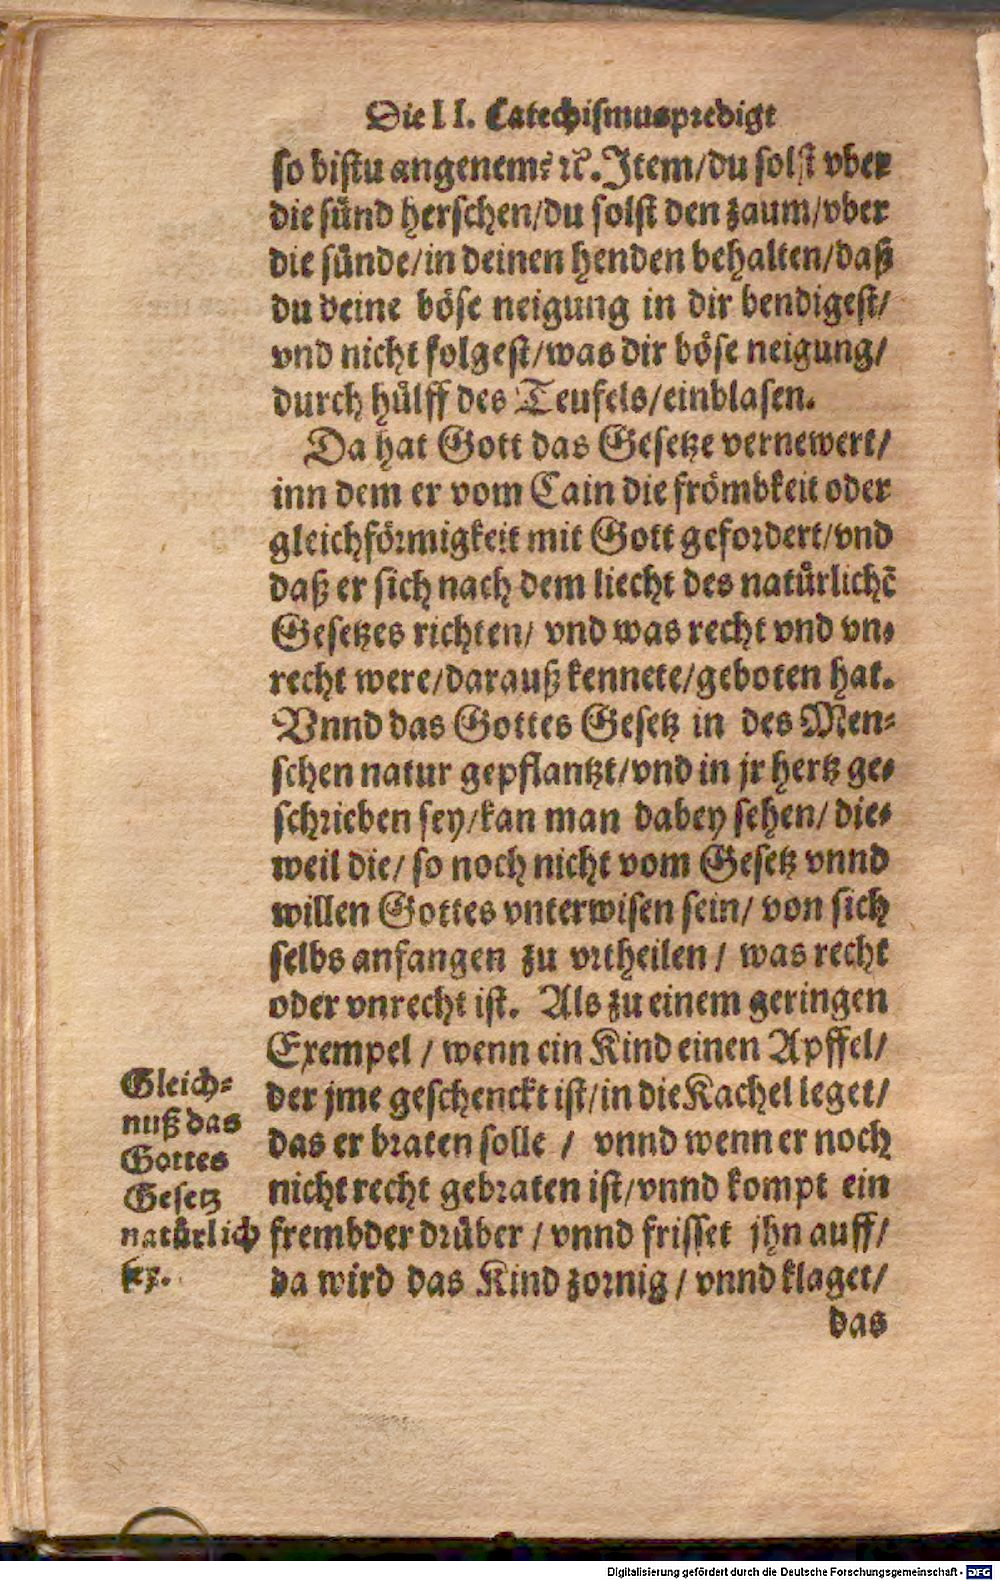 Die II. Catechismuspredigt
so bistu angenem? ꝛc. Item/du solst vber
die sünd herschen/du solst den zaum/vber
die sünde/in deinen henden behalten/daß
du deine böse neigung in dir bendigest/
vnd nicht folgest/was dir böse neigung/
durch hülff des Teufels/einblasen.
Da hat Gott das Gesetze vernewert/
inn dem er vom Cain die frömbkeit oder
gleichförmigkeit mit Gott gefordert/vnd
daß er sich nach dem liecht des natürlichē
Gesetzes richten/ vnd was recht vnd vn-
recht were/darauß kennete/geboten hat.
Vnnd das Gottes Gesetz in des Men-
schen natur gepflantzt/vnd in jr hertz ge-
schrieben sey/kan man dabey sehen/ die-
weil die/ so noch nicht vom Gesetz vnnd
willen Gottes vnterwisen sein/ von sich
selbs anfangen zu vrtheilen / was recht
oder vnrecht ist. Als zu einem geringen
Exempel / wenn ein Kind einen Apffel/
der jme geschenckt ist/in die Kachel leget/
das er braten solle / vnnd wenn er noch
nicht recht gebraten ist/vnnd kompt ein
frembder drüber / vnnd frisset jhn auff/
da wird das Kind zornig / vnnd klaget/
das
Gleich-
nuß das
Gottes
Gesetz
natürlich
sey.
Digitalisierung gefördert durch die Deutsche Forschungsgemeinschaft - DFG